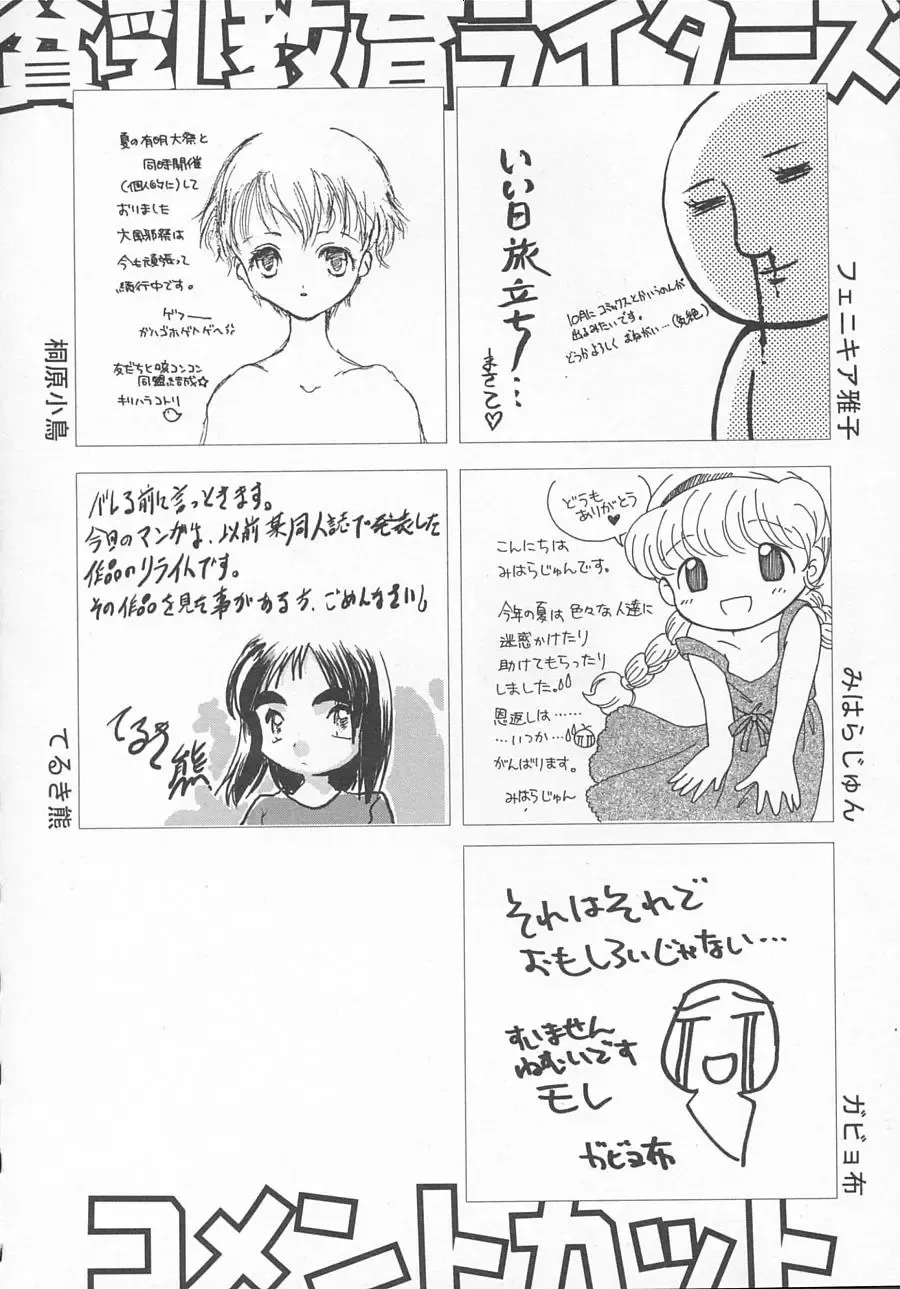 貧乳教育ライターズ
いい日旅立ち…
まさこ♡
10月にコミックスとかいうのんが
出るみたいです。
どうかよろしくおねがい…(気絶)
フェニキア雅子
夏の有明大祭と
同時開催
(個人的に)して
おりました
大風邪祭は
今も頑張って
続行中です。
ゲフー
ガハゴホゲヘゲヘ
友だちと咳コンコン
同盟結成☆
キリハラコトリ
桐原小鳥
どうも
ありがとう
♥
こんにちは
みはらじゅんです。
今年の夏は色々な人達に
迷惑かけたり
助けてもらったり
しました。
恩返しは……
…いつか…
がんばります。
みはらじゅん
みはらじゅん
バレる前に言っときます。
今回のマンガは、以前某同人誌で発表した
作品のリライトです。
その作品を見た事がある方、ごめんなさい。
てるき
熊
てるき熊
それはそれで
おもしろいじゃない…
すいません
ねむいです
モレ
ガビョ布
ガビョ布
コメントカット